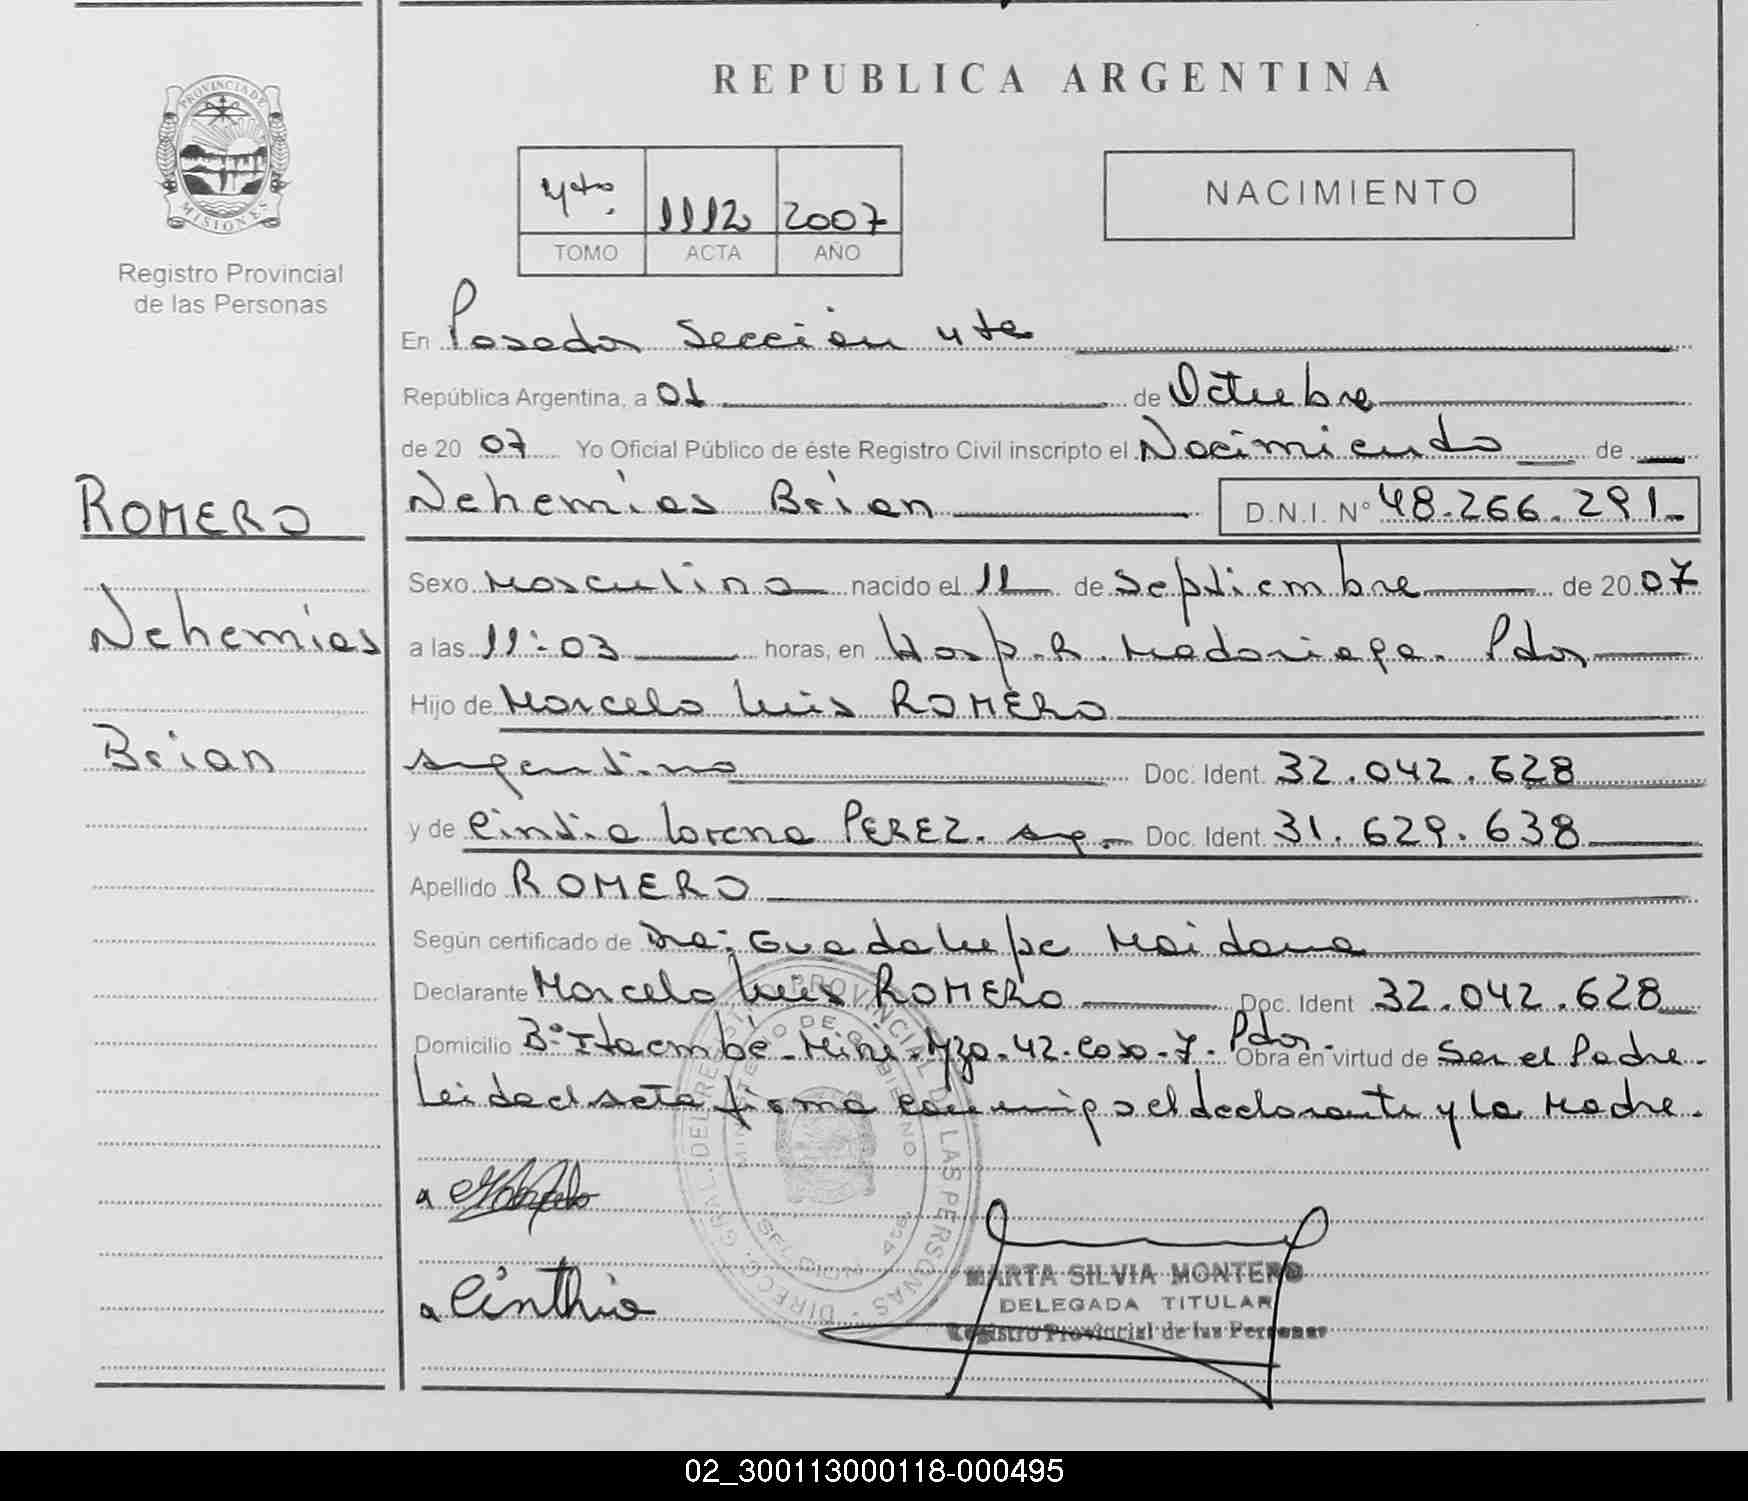 REPUBLICA ARGENTINA
PROVINCIA DE
MISIONES
Registro Provincial
de las Personas
4to. 1112 2007
TOMO ACTA AÑO
NACIMIENTO
En Posadas Sección 4ta
República Argentina, a 01 de Octubre
de 20 07 Yo Oficial Público de éste Registro Civil inscripto el Nacimiento de
Nehemias Brian D.N.I. N° 48.266.291.-
ROMERO
Nehemias
Brian
Sexo Masculino nacido el 11 de Septiembre de 20 07
a las 11:03 horas, en Hosp. R. Madariaga. Pdas
Hijo de Marcelo Luis ROMERO
argentino Doc. Ident. 32.042.628
y de Cintia Lorena PEREZ. arg. Doc. Ident. 31.629.638
Apellido ROMERO
Según certificado de Dra: Guadalupe Maidana
Declarante Marcelo Luis ROMERO Doc. Ident 32.042.628
Domicilio B° Itaembé-Miní-Mza-42-Casa-7. Pdas. Obra en virtud de Ser el Padre.
Leida el acta firma conmigo el declarante y la Madre.
DIRECC. GRAL DEL REGISTRO PROVINCIAL DE LAS PERSONAS
MINISTERIO DE GOBIERNO
SECCION 4ta
a
a Cinthia
MARTA SILVIA MONTERO
DELEGADA TITULAR
Registro Provincial de las Personas
02_300113000118-000495